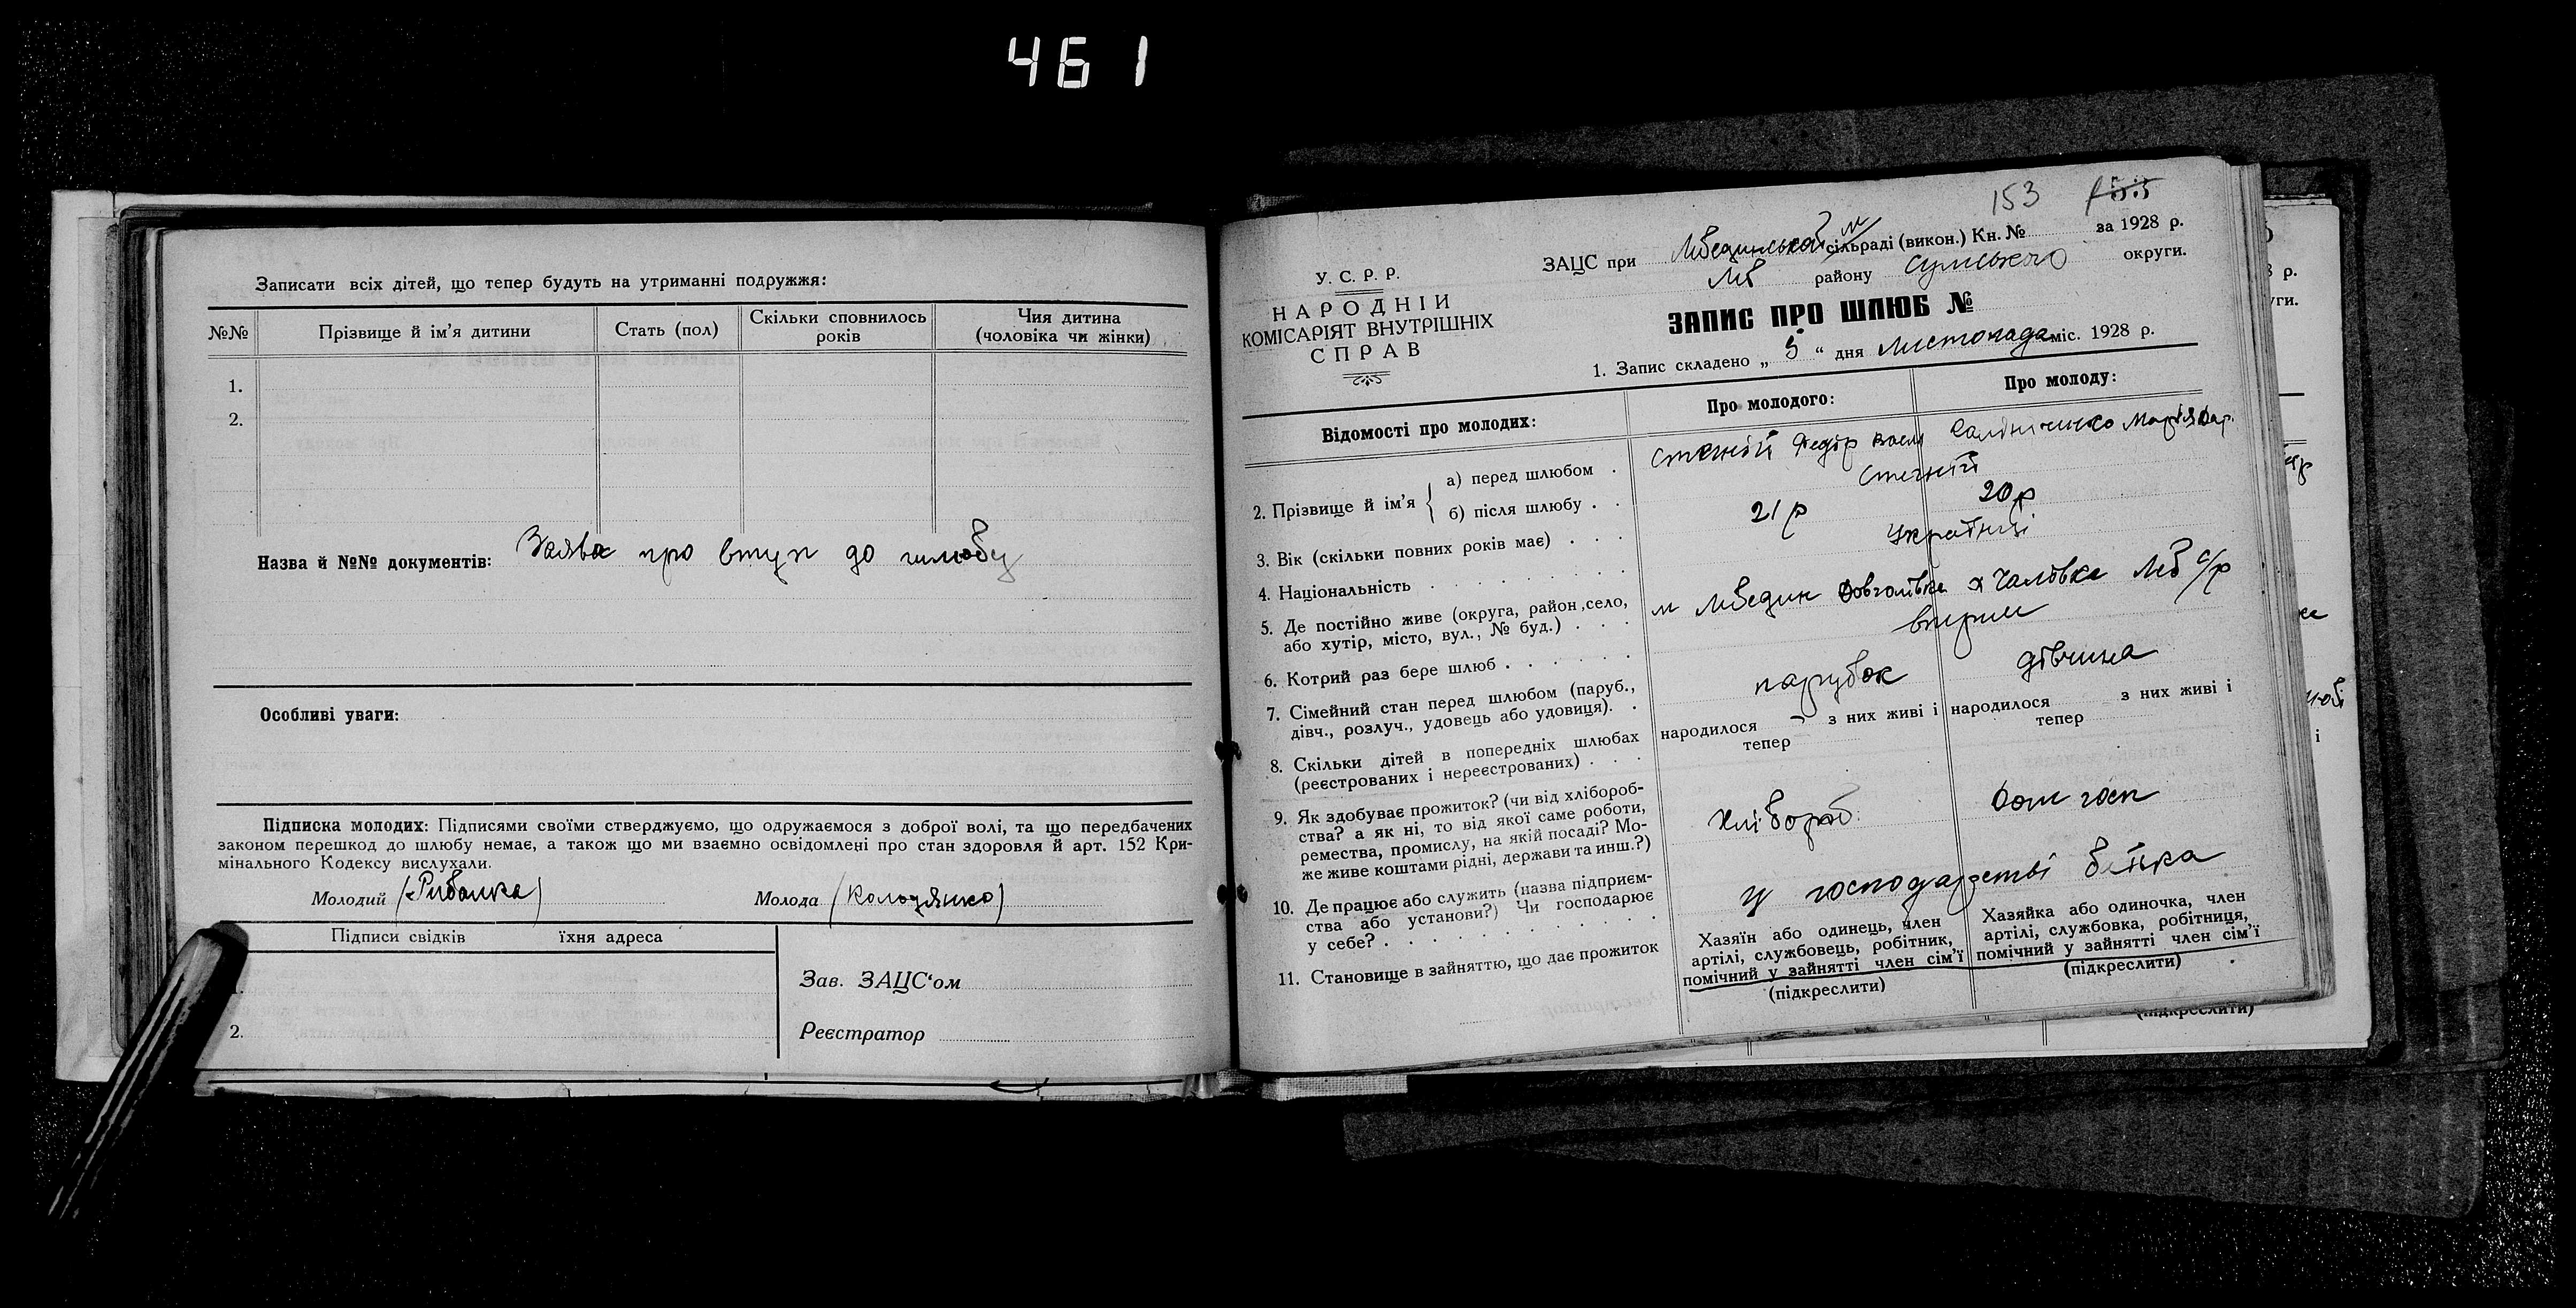 461
Записати всіх дітей, що тепер будуть на утриманні подружжя:
№№ Прізвище й ім’я дитини Стать (пол) Скільки сповнилось років Чия дитина (чоловіка чи жінки)
1.
2.
Назва й №№ документів: Заява про вступ до шлюбу
Особливі уваги:
Підписка молодих: Підписями своїми стверджуємо, що одружаємося з доброї волі, та що передбачених
законом перешкод до шлюбу немає, а також що ми взаємно освідомлені про стан здоровля й арт. 152 Кри-
мінального Кодексу вислухали.
Молодий (Рибалка) Молода (Колодянко)
Підписи свідків їхня адреса
2.
Зав. ЗАЦС‘ом
Реєстратор
153 155
У. С. Р. Р.
НАРОДНІЙ
КОМІСАРІЯТ ВНУТРІШНІХ
СПРАВ
ЗАЦС при Лебединській сільраді (викон.) Кн. № за 1928 р.
Леб району Сумського округи.
ЗАПИС ПРО ШЛЮБ №
1. Запис складено „ 5 “ дня листопада міс. 1928 р.
Відомості про молодих: Про молодого: Про молоду:
2. Прізвище й ім’я
а) перед шлюбом . Федір Васил Марія
б) після шлюбу . .
3. Вік (скільки повних років має) . . . 21 р 20 р
4. Національність Українці
5. Де постійно живе (округа, район, село,
або хутір, місто, вул., № буд.) . . . м Лебедин х Чалівка Леб с/р
6. Котрий раз бере шлюб . . . . . . вперше
7. Сімейний стан перед шлюбом (паруб.,
дівч., розлуч., удовець або удовиця). . парубок дівчина
8. Скільки дітей в попередніх шлюбах
(реєстрованих і нереєстрованих) . . .
народилося – з них живі і
тепер
народилося з них живі і
тепер
9. Як здобуває прожиток? (чи від хлібороб-
ства? а як ні, то від якої саме роботи,
ремества, промислу, на якій посаді? Мо-
же живе коштами рідні, держави та инш.?)
хлібороб Дом госп
10. Де працює або служить (назва підприєм-
ства або установи?) Чи господарює
у себе? . . . . . . . . . .
у господарстві батька
11. Становище в зайняттю, що дає прожиток
Хазяїн або одинець, член
артілі, службовець, робітник,
помічний у зайнятті член сім’ї
(підкреслити)
Хазяйка або одиночка, член
артілі, службовка, робітниця,
помічний у зайнятті член сім’ї
(підкреслити)
(підкреслити)